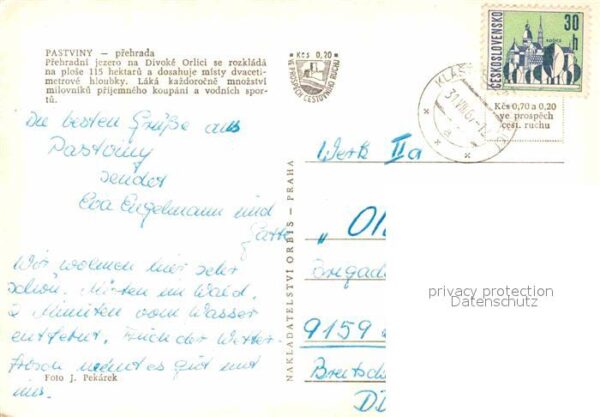 PASTVINY — přehrada
Přehradní jezero na Divoké Orlici se rozkládá
na ploše 115 hektarů a dosahuje místy dvaceti-
metrové hloubky. Láká každoročně množství
milovníků příjemného koupání a vodních spor-
tů.
Kčs 0,20
VE PROSPĚCH CESTOVNÍHO RUCHU
30 h
ČESKOSLOVENSKO
KOŠICE
Kčs 0,70 a 0,20
ve prospěch
cest. ruchu
Die besten Grüße aus
Pastviny
sendet
Eva Engelmann und
Gatte
Wir wohnen hier sehr
schön. Mitten im Wald,
2 Minuten vom Wasser
entfernt. Auch der Wetter-
frosch meint es gut mit
uns.
Foto J. Pekárek
NAKLADATELSTVÍ ORBIS — PRAHA
Werk IIa
9159
privacy protection
Datenschutz